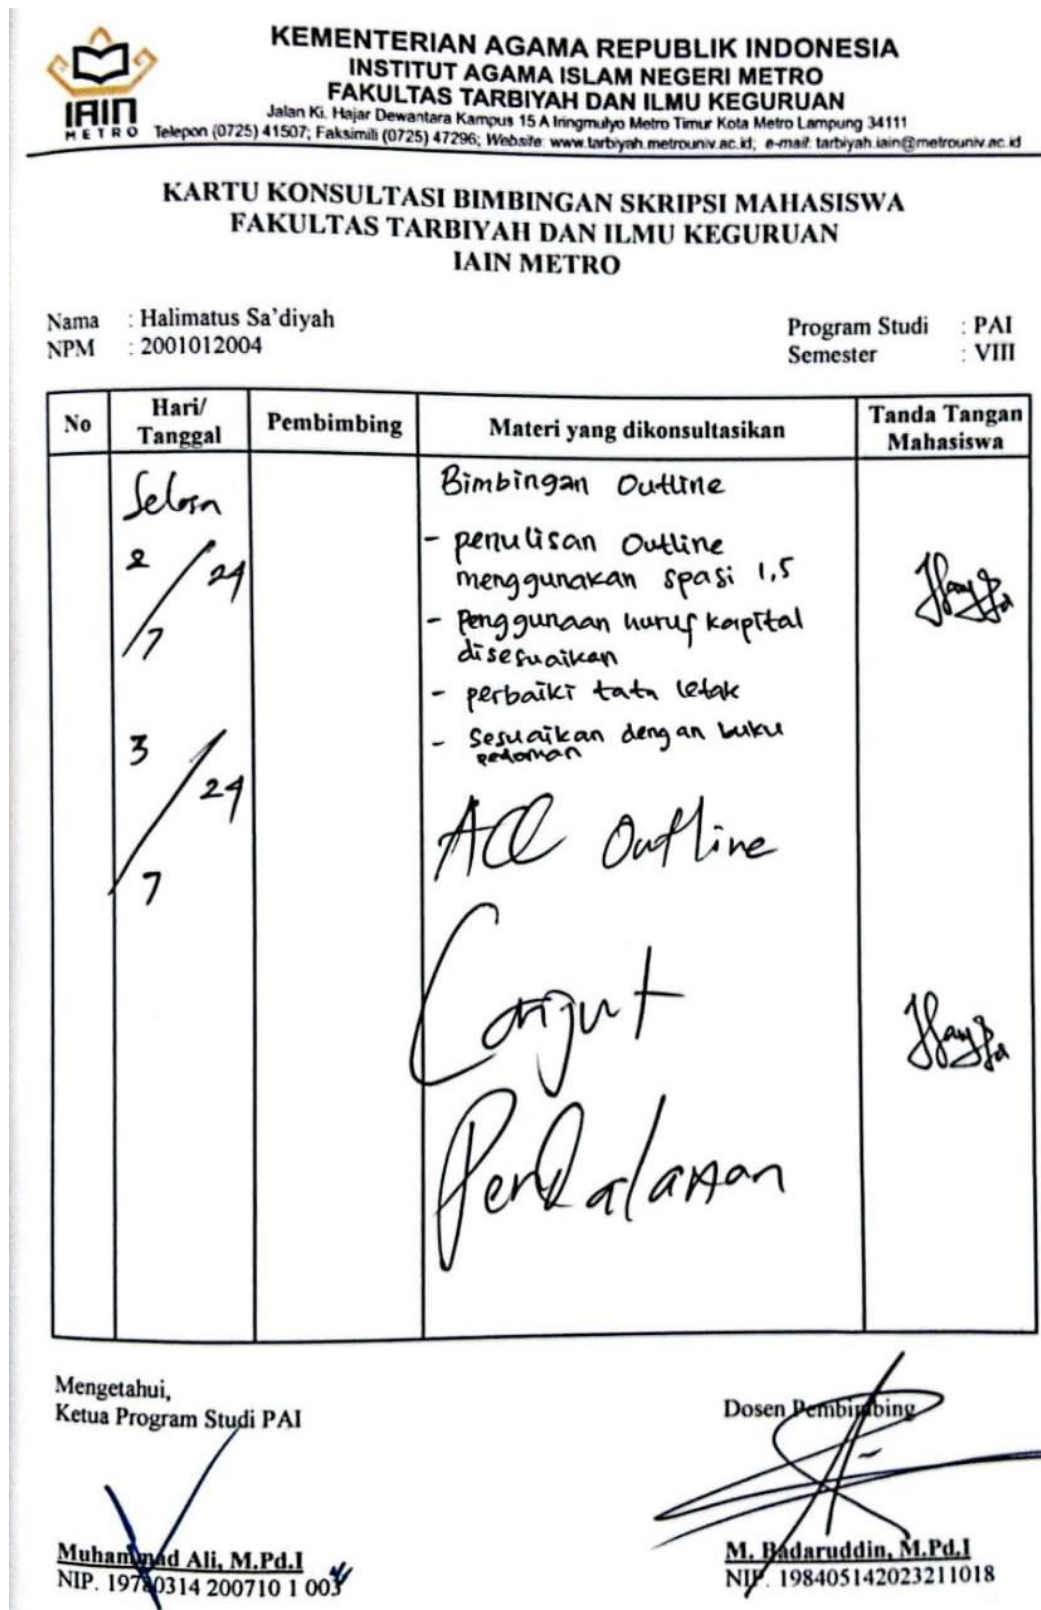 IAIN
METRO
KEMENTERIAN AGAMA REPUBLIK INDONESIA
INSTITUT AGAMA ISLAM NEGERI METRO
FAKULTAS TARBIYAH DAN ILMU KEGURUAN
Jalan Ki. Hajar Dewantara Kampus 15 A Iringmulyo Metro Timur Kota Metro Lampung 34111
Telepon (0725) 41507; Faksimili (0725) 47296; Website: www.tarbiyah.metrouniv.ac.id; e-mail: tarbiyah.iain@metrouniv.ac.id
KARTU KONSULTASI BIMBINGAN SKRIPSI MAHASISWA
FAKULTAS TARBIYAH DAN ILMU KEGURUAN
IAIN METRO
Nama : Halimatus Sa'diyah
NPM : 2001012004
Program Studi : PAI
Semester : VIII
No
Hari/
Tanggal
Pembimbing
Materi yang dikonsultasikan
Tanda Tangan
Mahasiswa
Selasa
2 / 24
/ 7
Bimbingan Outline
- penulisan Outline
menggunakan spasi 1,5
- Penggunaan huruf kapital
disesuaikan
- perbaiki tata letak
- Sesuaikan dengan buku
pedoman
3 / 24
/ 7
ACC Outline
Lanjut
Pendalaman
Mengetahui,
Ketua Program Studi PAI
Muhammad Ali, M.Pd.I
NIP. 19780314 200710 1 003
Dosen Pembimbing
M. Badaruddin, M.Pd.I
NIP. 198405142023211018